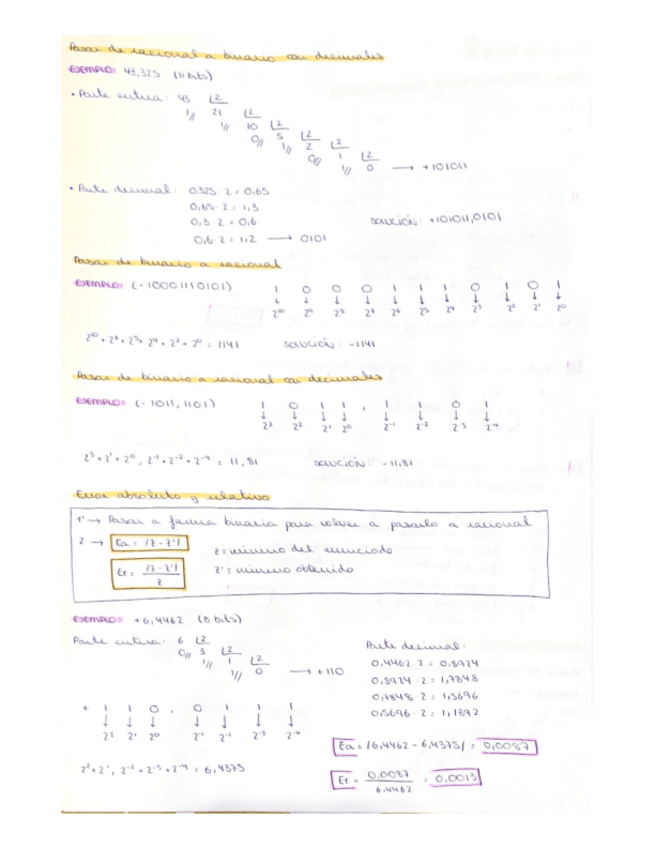 Pasar de racional a binario con decimales
EJEMPLO: 43,325 (11 bits)
• Parte entera: 43 |2
1// 21 |2
1// 10 |2
0// 5 |2
1// 2 |2
0// 1 |2
1// 0 → +101011
• Parte decimal: 0,325 · 2 = 0,65
0,65 · 2 = 1,3
0,3 · 2 = 0,6
0,6 · 2 = 1,2 → 0101
SOLUCIÓN: +101011,0101
Pasar de binario a racional
EJEMPLO: (-10001110101) 1 0 0 0 1 1 1 0 1 0 1
↓ ↓ ↓ ↓ ↓ ↓ ↓ ↓ ↓ ↓ ↓
2¹⁰ 2⁹ 2⁸ 2⁷ 2⁶ 2⁵ 2⁴ 2³ 2² 2¹ 2⁰
2¹⁰ + 2⁶ + 2⁵ + 2⁴ + 2² + 2⁰ = 1141 SOLUCIÓN: -1141
Pasar de binario a racional con decimales
EJEMPLO: (-1011,1101) 1 0 1 1 , 1 1 0 1
↓ ↓ ↓ ↓ ↓ ↓ ↓ ↓
2³ 2² 2¹ 2⁰ 2⁻¹ 2⁻² 2⁻³ 2⁻⁴
2³ + 2¹ + 2⁰, 2⁻¹ + 2⁻² + 2⁻⁴ = 11,81 SOLUCIÓN: -11,81
Error absoluto y relativo
1º → Pasar a forma binaria para volver a pasarlo a racional
2 → Ea = |z - z'| z = número del enunciado
Er = |z - z'| / z z' = número obtenido
EJEMPLO: +6,4462 (8 bits)
Parte entera: 6 |2
0// 3 |2
1// 1 |2
1// 0 → +110
Parte decimal:
0,4462 · 2 = 0,8924
0,8924 · 2 = 1,7848
0,7848 · 2 = 1,5696
0,5696 · 2 = 1,1392
+ 1 1 0 , 0 1 1 1
↓ ↓ ↓ ↓ ↓ ↓ ↓
2² 2¹ 2⁰ 2⁻¹ 2⁻² 2⁻³ 2⁻⁴
2² + 2¹, 2⁻² + 2⁻³ + 2⁻⁴ = 6,4375
Ea = |6,4462 - 6,4375| = 0,0087
Er = 0,0087 / 6,4462 = 0,0013